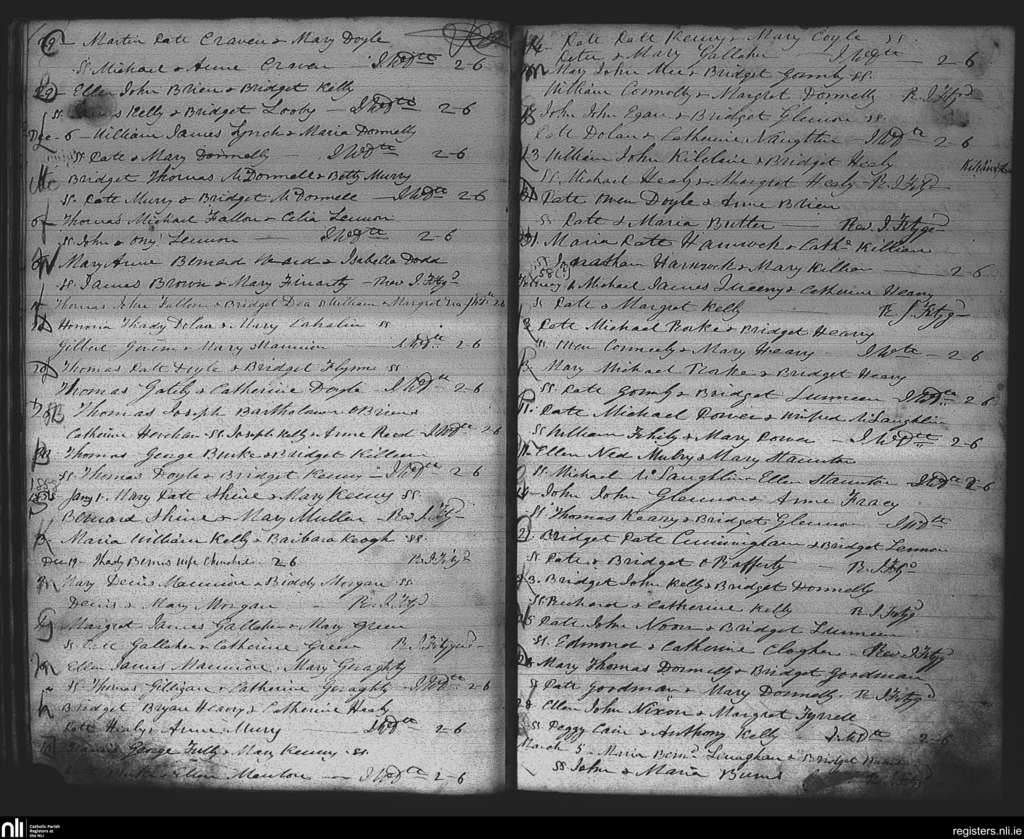 29 Martin Patt Craven & Mary Doyle
SS Michael & Anne Craven — J W Dtt 2-6
29 Ellen John Brien & Bridget Kelly
SS Kelly & Bridget Looby — J W Dtt 2-6
Dec. 6 William James Lynch & Maria Donnelly
SS Patt & Mary Donnelly — J W Dtt 2-6
Bridget Thomas McDonnell & Betty Murry
SS Patt Murry & Bridget McDonnell — J W Dtt 2-6
Thomas Michael Fallon & Celia Lennon
SS John & Lennon — J W Dtt 2-6
Mary Anne Bernard & Isabella Dodd
SS James Brown & Mary Finarty — Rev J. Fitzd
Thomas John Fallon & Bridget Dea SS William & Margret Dea 2-6
Honoria Thady Dolan & Mary SS
Gilbert & Mary Mannion J W Dtt 2-6
Thomas Patt Doyle & Bridget Flynn SS
Thomas & Catherine Doyle — J W Dtt 2-6
Thomas Joseph Bartholomew OBrien
Catherine SS Joseph Kelly & Anne Reed J W Dtt 2-6
Thomas George Burke & Bridget Killeen
SS Thomas Doyle & Bridget Kenny — J W Dtt 2-6
Jany 1. Mary Patt Shine & Mary Kenny SS
Bernard Shine & Mary Mullen — Rev J. Fitzd
Maria William Kelly & Barbara Keogh SS
Dec 19 Thady wife Churched 2-6 R. J. Fitzd
Mary Denis Mannion & Biddy Morgan SS
Denis & Mary Morgan — R. J. Fitzd
Margret James Gallaher & Mary Green
SS Patt Gallaher & Catherine Green R. J. Fitzd
Ellen James Mannion, Mary Geraghty
SS Thomas Gilligan & Catherine Geraghty — J W Dtt 2-6
Bridget Bryan Heavy & Catherine Healy
Patt Healy & Anne Murry J W Dtt 2-6
George Tully & Mary Kenny SS
Manton — J W Dtt 2-6
14 Patt Patt Kenny & Mary Coyle SS
Peter & Mary Gallaher J W Dtt — 2-6
Mary John Mee & Bridget Gormly SS
William Connolly & Margret Donnelly R. J. Fitzd
John John Egan & Bridget Glennon SS
Patt Dolan & Catherine Naughton — J W Dtt 2-6
23 William John Kilclain & Bridget Healy
SS Michael Healy & Margret Healy — R. J. Fitzd
Patt Owen Doyle & Anne Brien
SS Patt & Maria Butler — Rev. J. Fitzgd
31 Maria Patt Hanrock & Cathe Killian
SS Jonathan Hanrock & Mary Killian — 2-6
Michael James Sweeny & Catherine Heavy
SS Patt & Margret Kelly R. J. Fitzgd
Patt Michael Roarke & Bridget Heavy
SS Owen Connelly & Mary Heavy J W Dtt — 2-6
Mary Michael Roarke & Bridget Heavy
SS Patt Gormly & Bridget Lumeen J W Dtt 2-6
11. Patt Michael Power & Winifred McLaughlin
SS William Fehily & Mary Power — J W Dtt 2-6
11. Ellen Ned Mulry & Mary Staunton
SS Michael McLaughlin & Ellen Staunton J W Dtt 2-6
14 John John Glennon & Anne Tracy
SS Thomas Keary & Bridget Glennon J W Dtt
Bridget Patt Cunningham & Bridget Lennon
SS Patt & Bridget O Rafferty — R. J. Fitzd
23. Bridget John Kelly & Bridget Donnelly
SS Richard & Catherine Kelly R J Fitzgd
25 Patt John Noon & Bridget Lumeen
SS. Edmond & Catherine Clogher — Rev. J. Fitzd
Mary Thomas Donnelly & Bridget Goodman
SS Patt Goodman & Mary Donnelly R J Fitzgd
28 Ellen John Nixon & Margret Tyrrell
SS Peggy Cain & Anthony Kelly J W Dtt 2-6
March 5 Maria Bernd Linaghan & Bridget
SS John & Maria Burns
nli
Catholic Parish
Registers at
the NLI
registers.nli.ie